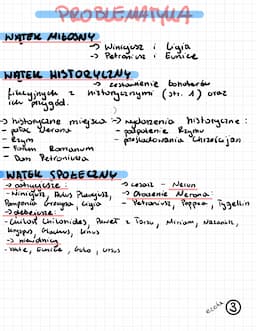 PROBLEMATYKA
WĄTEK MIŁOSNY
→ Winicjusz i Ligia
→ Petroniusz i Eunice
WĄTEK HISTORYCZNY
→ zestawienie bohaterów
fikcyjnych z historycznymi (str. 1) oraz
ich przygód.
→ historyczne miejsca
- pałac Nerona
- Rzym
- Forum Romanum
- Dom Petroniusza
→ wydarzenia historyczne:
- podpalenie Rzymu
- prześladowania chrześcijan
WĄTEK SPOŁECZNY
→ patrycjusze:
- Winicjusz, Aulus Plaucjusz,
Pomponia Grecyna, Ligia
→ plebejusze:
- Chilon Chilonides, Paweł z Tarsu, Miriam, Nazariusz,
Kryspus, Glaukus, Linus
→ niewolnicy
Eunice, Ursus
→ cesarz - Neron
→ Otoczenie Nerona:
- Petroniusz, Poppea, Tygellin
3